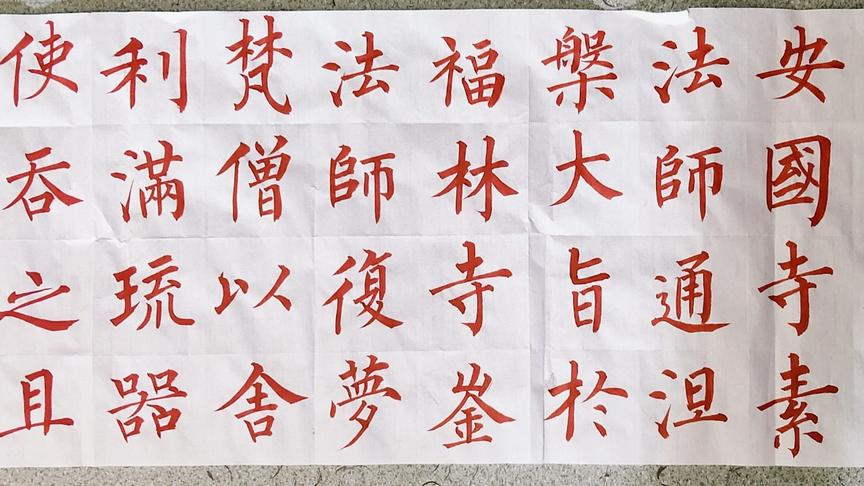 安國寺素
法師通涅
槃大旨於
福林寺崟
法師復夢
梵僧以舍
利滿琉器
使吞之且